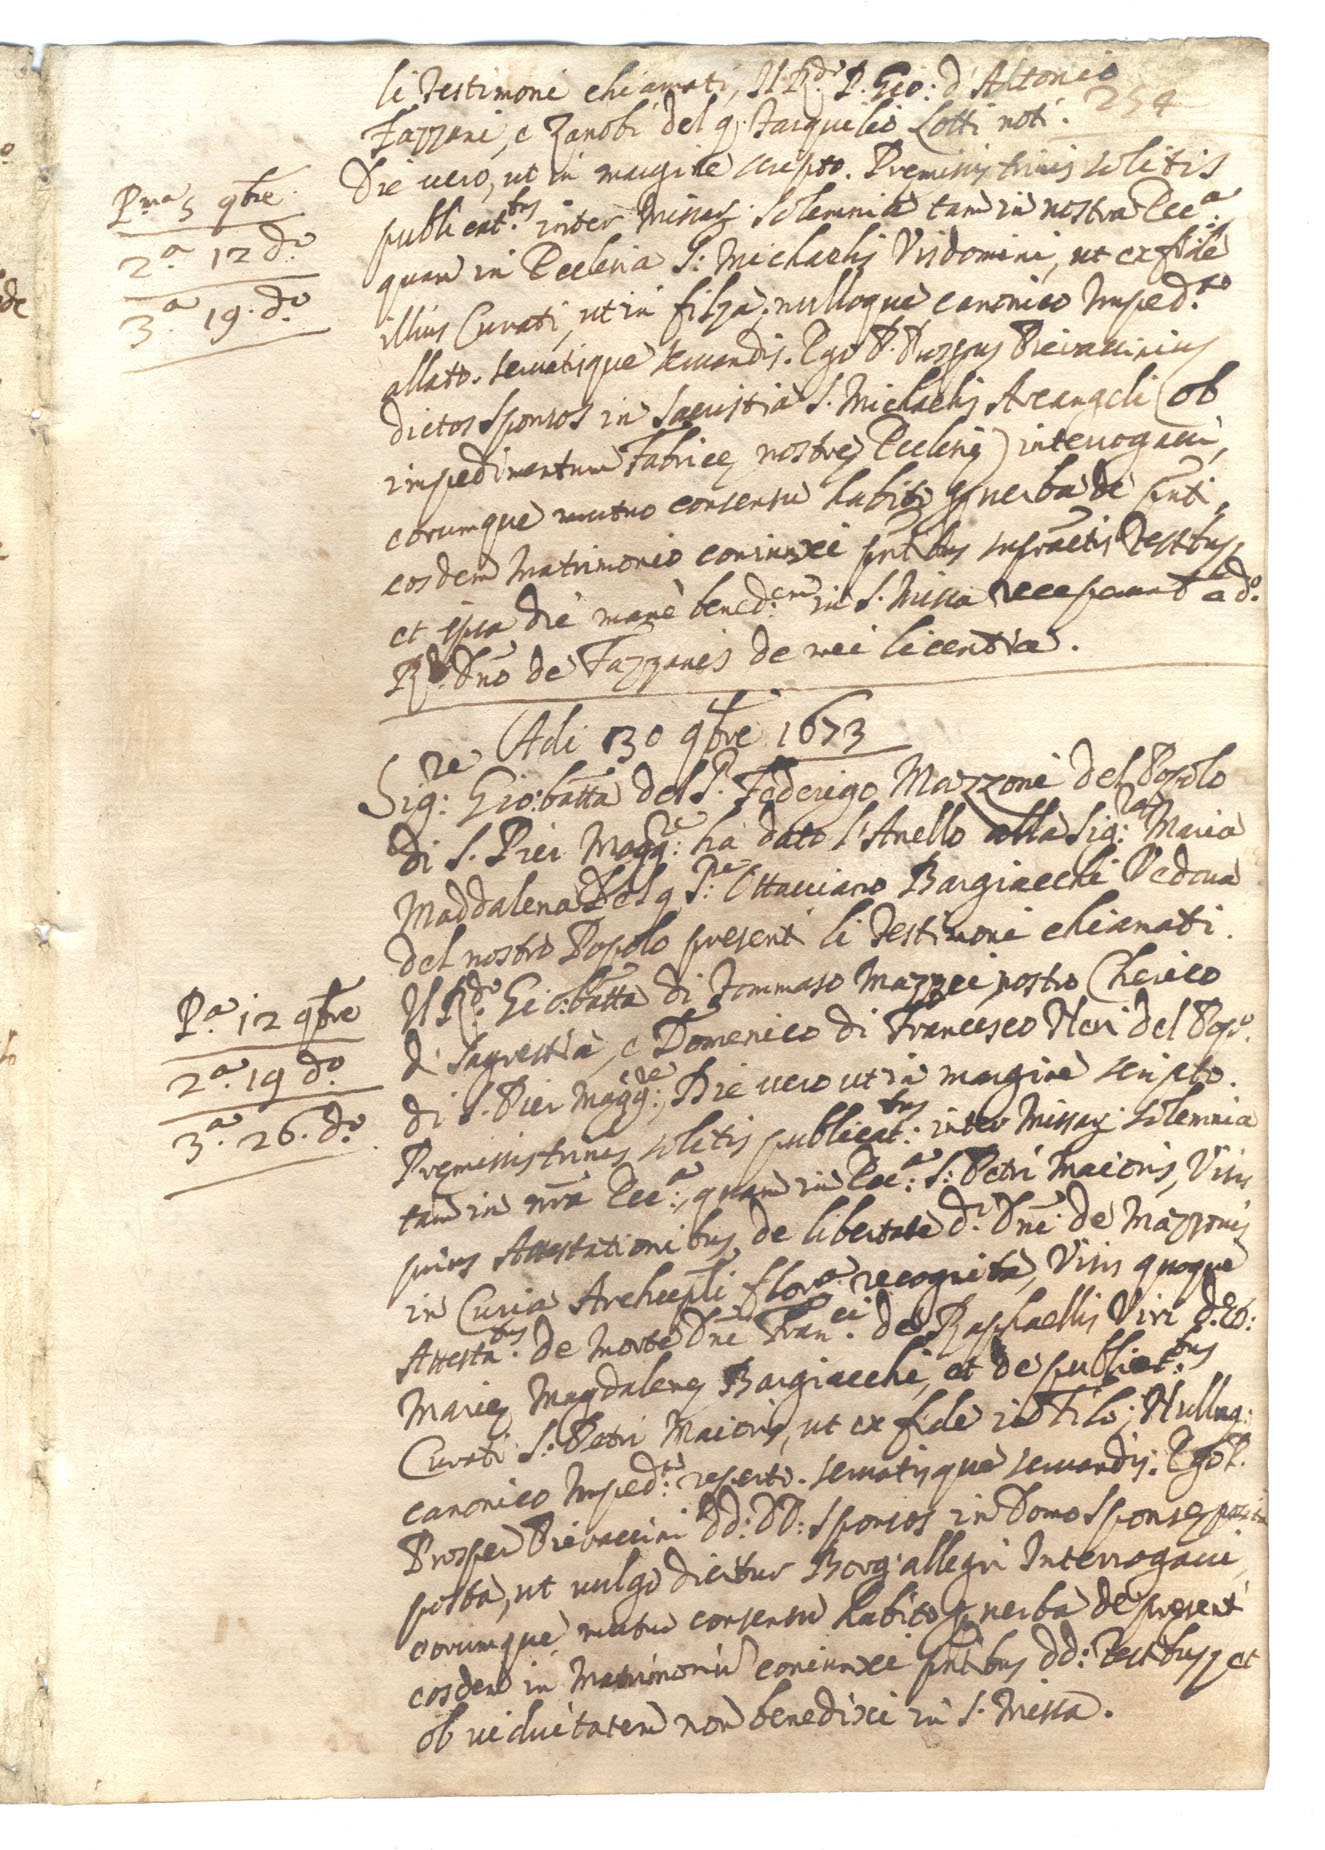 li Testimoni chiamati, Il R.do P. Gio: d'Altonio
254
Fazzani, e Zanobi del q. Tarquilio Lotti noti.
Die vero, ut in margine scripto. Premissis trinis solitis
P.ma 5 9bre
publicat.bus inter Missar. solemnia tam in nostra Ecc.a
2.a 12 d.o
quam in Ecclesia S. Michaelis Visdomini, ut ex fide
3.a 19. d.o
illius Curati, ut in filza, nulloque canonico Imped.to
allato. servatisque servandis. Ego P. Prosper Pievaccinius
dictos Sponsos in Sacristia S. Michaelis Arcangeli (ob
impedimentum Fabrice nostre Ecclesie) interrogavi,
eorumque mutuo consensu habito p verba de pnti
eosdem Matrimonio coniunxi pntibus supractis Testibus,
et ipsa die mane bened.em in S. Missa receperunt a d.o
R.do Dno de Fazzanis de mei licentia.
Adi 30 9bre 1673
Sig.re Gio:batta del S. Federigo Mazzoni del Popolo
di S. Pier Magg.re ha dato l'Anello alla Sig.ra Maria
Maddalena del q S.re Ottaviano Bargiacchi Vedova
del nostro Popolo presenti li Testimoni chiamati.
P.a 12 9bre
Il R.do Gio:batta di Tommaso Mazzei nostro Cherico
2.a 19 d.o
di Sagrestia, e Domenico di Francesco Neri del Pop.o
3.a 26. d.o
di S. Pier Magg.re; Die vero ut in margine scripto.
Premissis trinis solitis publicat.bus inter Missar. solemnia
tam in nra Ecc.a, quam in Ecc.a S: Petri Maioris, Visis
prius Attestationibus de libertate d.i Dni de Mazzonis
in Curia Archiepli flor.a recognita, Visis quoque
Attesta.bus de morte Dni Fran.ci de Raphaellis Viri d.
Marie Magdalene Bargiacchi, et de publicat.bus
Curati S: Petri Maioris, ut ex fide in Filo; Nulloq:
canonico Imped.to reperto. servatisque servandis. Ego P.
Prosper Pievaccini DD: DD: Sponsos in Domo Sponse
posita, ut vulgo dicitur Borg'allegri Interrogavi,
eorumque mutuo consensu habito p verba de presenti
eosdem in Matrimoniu coniunxi pntibus dd: Testibus, et
ob viduitatem non benedixi in S. Missa.